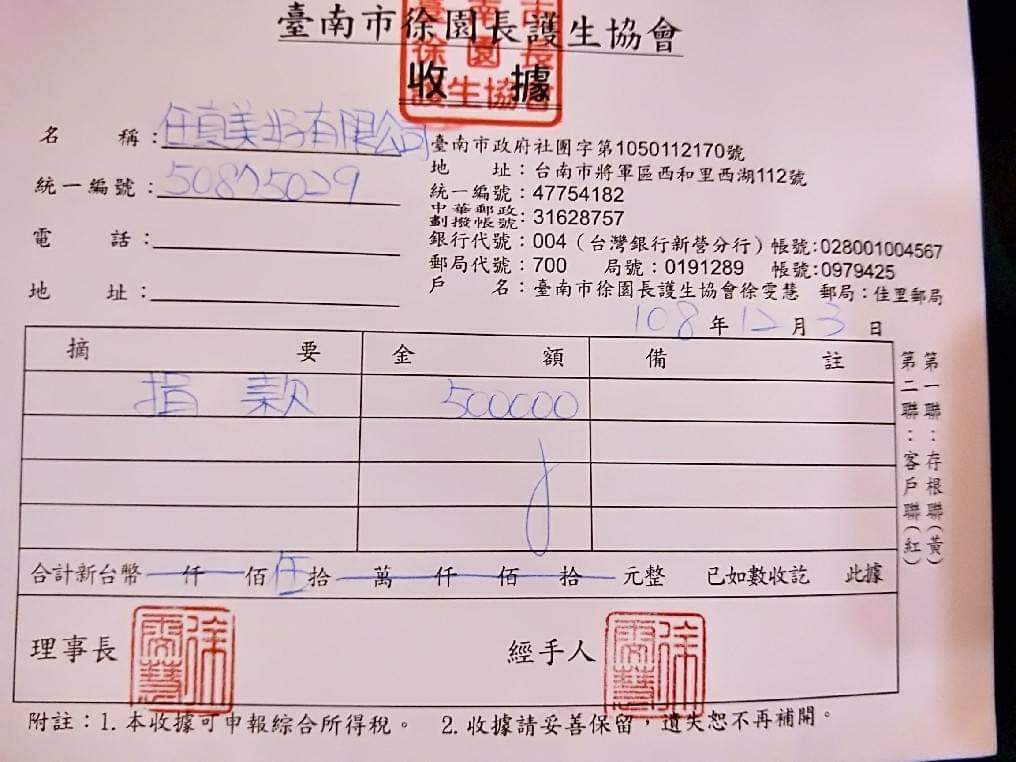 臺南市徐園長護生協會
臺南市徐園長護生協會
收據
名稱：任真美妤有限公司
統一編號：50875029
電話：
地址：
臺南市政府社團字第1050112170號
地址：台南市將軍區西和里西湖112號
統一編號：47754182
中華郵政劃撥帳號：31628757
銀行代號：004（台灣銀行新營分行）帳號:028001004567
郵局代號：700 局號：0191289 帳號:0979425
戶名：臺南市徐園長護生協會徐雯慧 郵局：佳里郵局
108年12月3日
摘要 金額 備註
捐款 500000
合計新台幣 仟 佰 伍拾 萬 仟 佰 拾 元整 已如數收訖 此據
理事長 徐雯慧 經手人 徐雯慧
附註：1. 本收據可申報綜合所得稅。 2. 收據請妥善保留，遺失恕不再補開。
第一聯：存根聯（黃）
第二聯：客戶聯（紅）